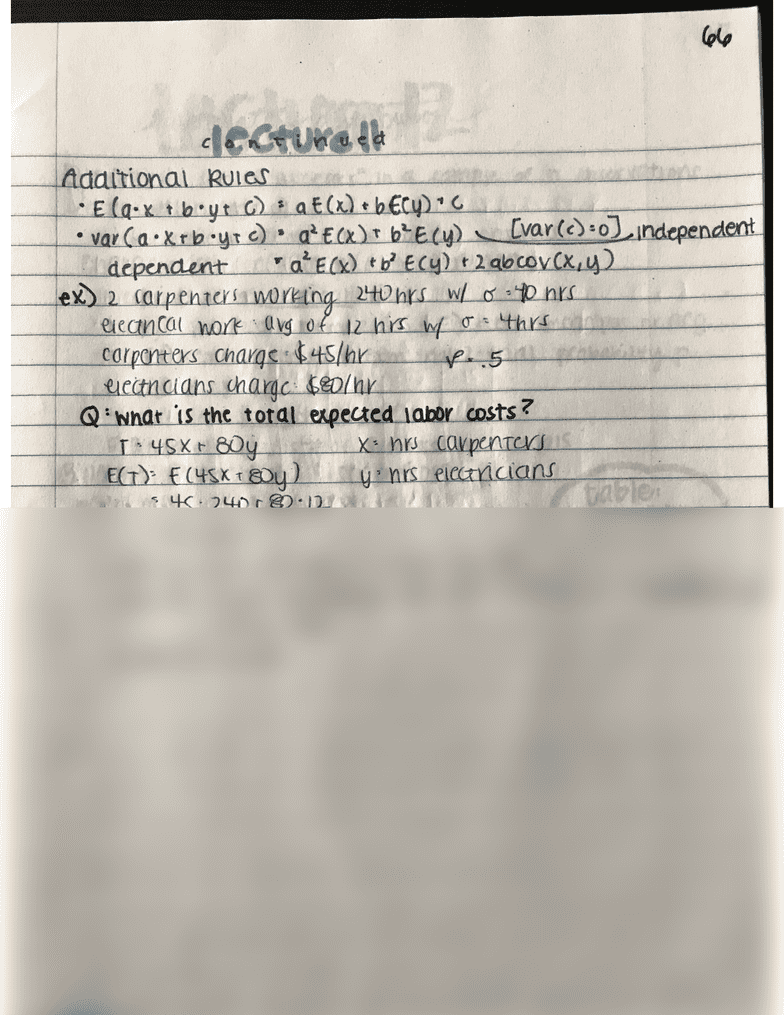 66
lecture 11
continued
Additional Rules
• E(a·x + b·y + c) = aE(x) + bE(y) + c
• var(a·x + b·y + c) = a²E(x) + b²E(y) [var(c)=0] independent
dependent = a²E(x) + b²E(y) + 2abcov(x,y)
ex) 2 carpenters working 240hrs w/ σ=40 hrs
electrical work: avg of 12 hrs w/ σ = 4hrs
carpenters charge: $45/hr ρ = .5
electricians charge: $80/hr
Q: What is the total expected labor costs?
T = 45x + 80y x = hrs carpenters
E(T) = E(45x + 80y) y = hrs electricians
= 45·240 + 80·12
table: